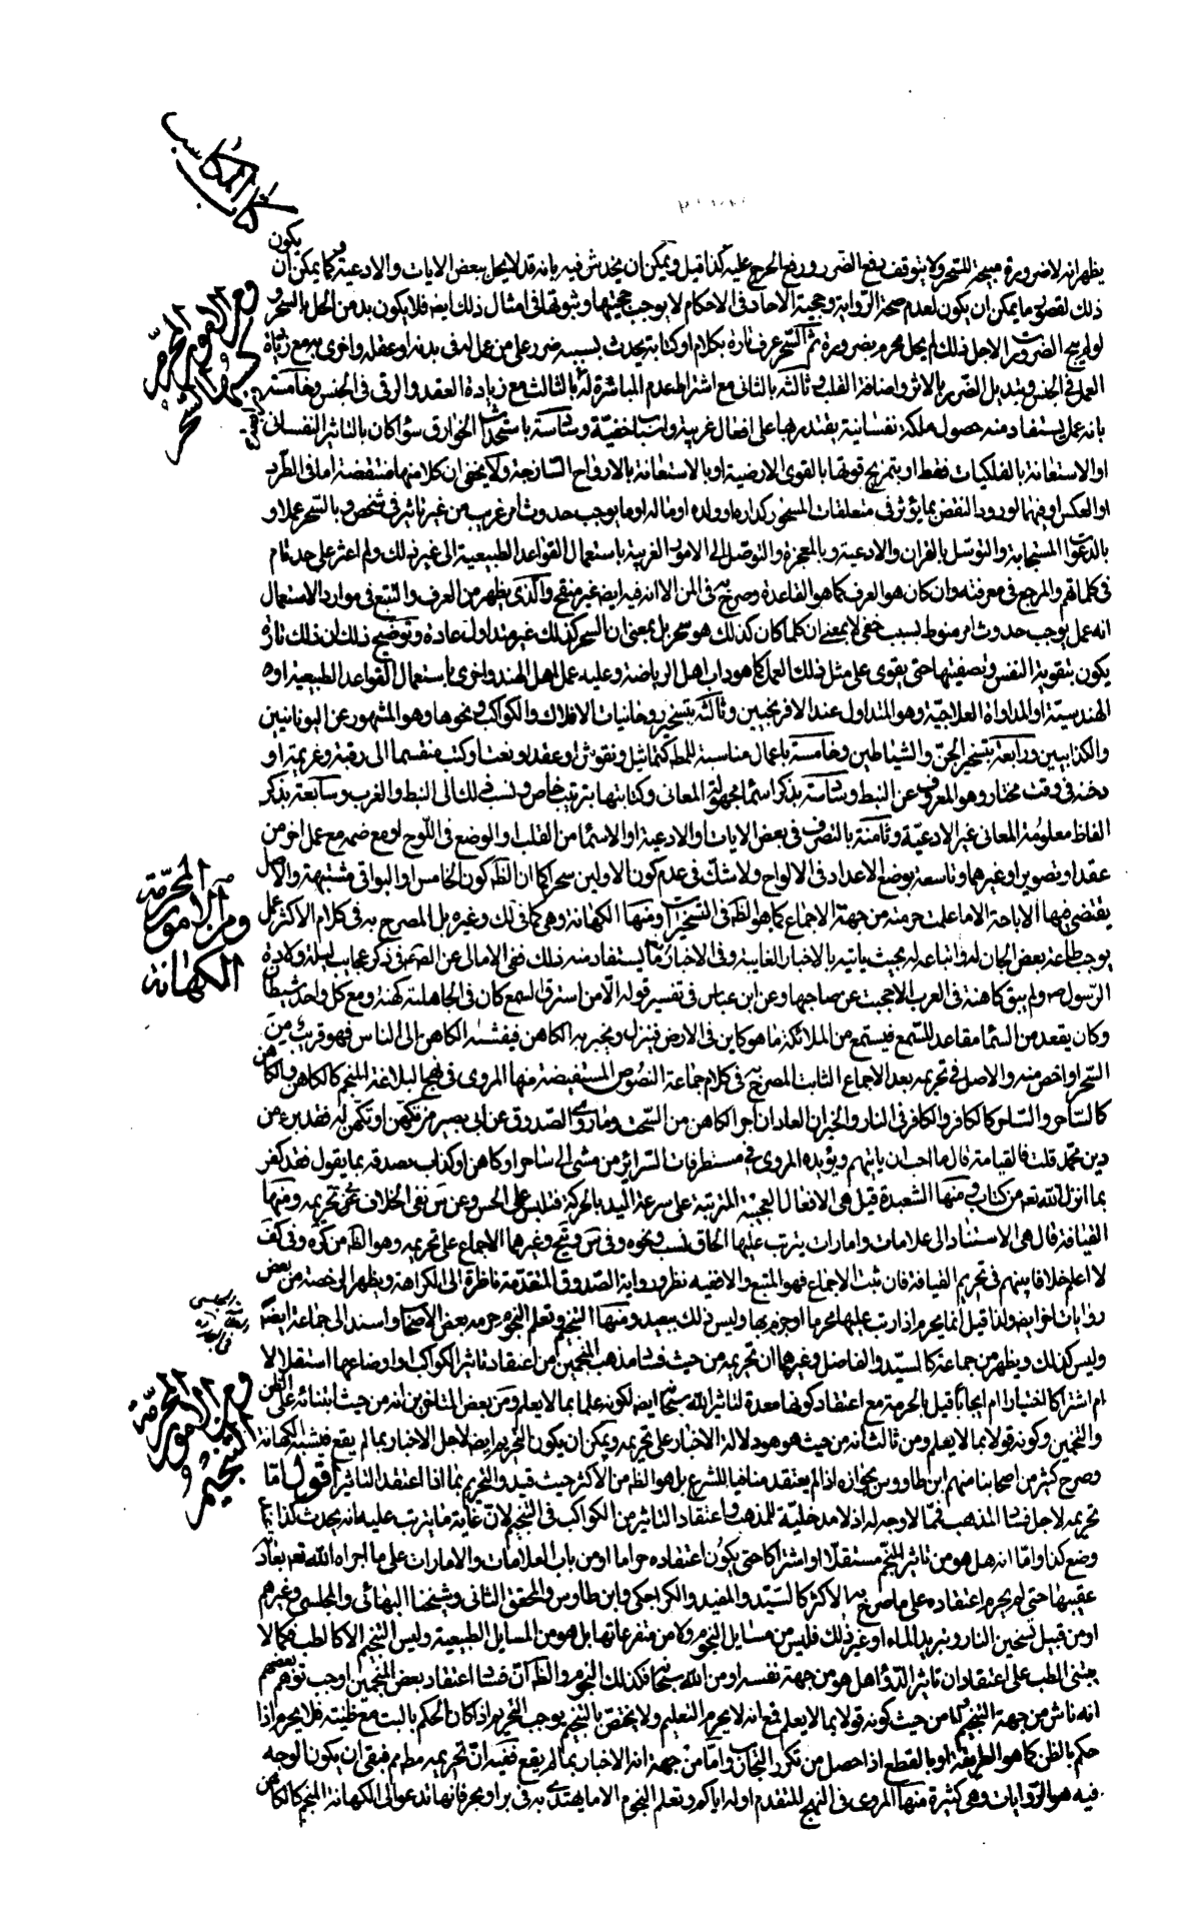 كتاب المكاسب
يظهر انه لا ضرورة مبيحة للسحر ولا يتوقف دفع الضرر ورفع الحرج عليه كذا قيل ويمكن ان يخدش فيه بانه قد لا ينحل ببعض الايات والادعية وكما يمكن ان يكون
ذلك لقصور ما يمكن ان يكون لعدم صحة الرواية وحجية الاحاد فى الاحكام لا يوجب حجيتها وثبوتها فى امثال ذلك ايضا فلا يكون بد من الحل بالسحر و
لو لم يبح الضرورات لاجل ذلك لم يحل محرم بضرورة ثم السحر عرف تارة بكلام او كتابة يحدث بسببه ضرر على من عمل له فى بدنه او عقله واخرى به مع زيادة
العمل فى الجنس وتبديل الضرر بالاثر واضافة القلب وثالثة بالثانى مع اشتراط عدم المباشرة له ورابعة بالثالث مع زيادة العقد والرقى فى الجنس وخامسة
بانه عمل يستفاد منه حصول ملكة نفسانية يقتدر بها على افعال غريبة واسباب خفية وسادسة باستحداث الخوارق سواء كان بالتاثير النفسانى
او الاستعانة بالفلكيات فقط او بتمزيج قويها بالقوى الارضية او بالاستعانة بالارواح الساذجة ولا يخفى ان كلا منها منتقضة اما فى الطرد
او العكس او فيهما لورود النقض بما يؤثر فى متعلقات المسحور كداره وولده او ماله او ما يوجب حدوث امر غريب من غير تاثير فى شخص وبالسحر عملا و
بالدعوات المستجابة والتوسل بالقران والادعية وبالمعجزة والتوصل الى الامور الغريبة باستعمال القواعد الطبيعية الى غير ذلك ولم اعثر على حد تام
فى كلماتهم والمرجع فى معرفته وان كان هو العرف كما هو القاعدة وصرح به فى المن الا انه فيه ايضا غير منقح والذى يظهر من العرف والتتبع فى موارد الاستعمال
انه عمل يوجب حدوث امر منوط بسبب خفى لا بمعنى ان كلما كان كذلك هو سحر بل بمعنى ان السحر كذلك غير متداول عادة وتوضيح ذلك ان ذلك تارة
يكون بتقوية النفس وتصفيتها حتى يقوى على مثل ذلك العمل كما هو داب اهل الرياضة وعليه عمل اهل الهند واخرى باستعمال القواعد الطبيعية او
الهندسية او المداواة العلاجية وهو المتداول عند الافرنجيين وثالثة بتسخير روحانيات الافلاك والكواكب ونحوها وهو المشهور عن اليونانيين
والكذابيين ورابعة بتسخير الجن والشياطين وخامسة باعمال مناسبة للمط كتماثيل ونقوش او عقد ونفث او كتب منقسما الى رقية وعزيمة او
دخنة فى وقت مختار وهو المعروف عن النبط وسادسة بذكر اسماء مجهولة المعانى وكتابتها بترتيب خاص ونسب ذلك الى النبط والعرب وسابعة بذكر
الفاظ معلومة المعانى غير الادعية وثامنة بالتصرف فى بعض الايات او الادعية او الاسماء من القلب او الوضع فى اللوح او مع ضمه مع عمل اخر من
عقد او تصوير او غيرها وتاسعة بوضع الاعداد فى الالواح ولا شك فى عدم كون الاولين سحرا كما ان الظ كون الخامس او البواقى مشتبهة والاصل
يقتضى فيها الاباحة الا ما علمت حرمته من جهة الاجماع كما هو الظ فى التسخيرات ومنها الكهانة وهى كما فى لك وغيره بل المصرح به فى كلام الاكثر عمل
يوجب طاعة بعض الجان له واتباعه له بحيث ياتيه بالاخبار الغايبة وفى الاخبار ما يستفاد منه ذلك ففى الامالى عن الصم فى ذكر عجايب ليلة ولادة
الرسول ص ولم يبق كاهنة فى العرب الا حجبت عن صاحبها وعن ابن عباس فى تفسير قوله الا من استرق السمع كان فى الجاهلية كهنة ومع كل واحد شيطان
وكان يقعد من السماء مقاعد للسمع فيستمع من الملائكة ما هو كاين فى الارض فينزل ويخبر به الكاهن فيفشيه الكاهن الى الناس فهو قريب من
السحر او اخص منه والاصل فى تحريمه بعد الاجماع الثابت المصرح به فى كلام جماعة النصوص المستفيضة منها المروى فى نهج البلاغة المنجم كالكاهن والكاهن
كالساحر والساحر كالكافر والكافر فى النار والخبران العادان اجر الكاهن من السحت وما رواه الصدوق عن ابى بصير من تكهن او تكهن له فقد برئ من
دين محمد قلت فالقيافة قال ما احب ان ياتيهم ويؤيده المروى فى مستطرفات السرائر من مشى الى ساحر او كاهن او كذاب يصدقه بما يقول فقد كفر
بما انزل الله تعم من كتاب ومنها الشعبدة قيل هى الافعال العجيبة المترتبة على سرعة اليد بالحركة فتلبس على الحس وعن س نفى الخلاف عن تحريمه ومنها
القيافة قال هى الاستناد الى علامات وامارات يترتب عليها الحاق نسب ونحوه وفى س وتج وغيرهما الاجماع على تحريمه وهو الظ من كره وفى كف
لا اعلم خلافا بينهم فى تحريم القيافة فان ثبت الاجماع فهو المتبع والا ففيه نظر ورواية الصدوق المتقدمة ناظرة الى الكراهة ويظهر الرخصة من بعض
روايات اخر ايضا ولذا قيل انما يحرم اذا رتب عليها محرما او جزم بها وليس ذلك ببعيد ومنها التنجيم وتعلم النجوم حرمه بعض الاصحاب واسند الى جماعة ايضا
وليس كذلك ويظهر من جماعة كالسيد والفاضل وغيرهما ان تحريمه من حيث فساد مذهب المنجمين من اعتقاد تاثير الكواكب واوضاعها استقلالا
ام اشتراكا اختيارا ام ايجابا قيل الحرمة مع اعتقاد كونها معدة لتاثير الله سبحانه ايضا لكونه علما بما لا يعلم ومن بعض المتاخرين انه من حيث ابتنائه على الظن
والتخمين وكونه قولا بما لا يعلم ومن ثالث انه من حيث هو هو دلالة الاخبار على تحريمه ويمكن ان يكون التحريم ايضا لاجل الاخبار بما لم يقع فيشبه الكهانة
وصرح كثير من اصحابنا منهم ابن طاووس بجوازه اذا لم يعتقد منافيا للشرع بل هو الظ من الاكثر حيث قيدوا التحريم بما اذا اعتقد التاثير اقول اما
تحريمه لاجل فساد المذهب فمما لا وجه له اذ لا مدخلية للمذهب واعتقاد التاثير من الكواكب فى التنجيم لان غاية ما يترتب عليه انه يحدث كذا بما
وضع كذا واما انه هل هو من تاثير النجم مستقلا او اشتراكا حتى يكون اعتقاده حراما او من باب العلامات والامارات على ما اجراه الله تعم بعادته
عقيبها حتى لم يحرم اعتقاده على ما صرح به الاكثر كالسيد والمفيد والكراجكى وابن طاوس والمحقق الثانى وشيخنا البهائى والمجلسى وغيرهم
او من قبيل تسخين النار وتبريد الماء او غير ذلك فليس من مسايل النجوم ولا من متفرعاتها بل هو من المسايل الطبيعية وليس التنجيم الا كالطب فكما لا
يبتنى الطب على اعتقاد ان تاثير الدواء هل هو من جهة نفسه او من الله سبحانه فكذلك النجوم والظ ان فساد اعتقاد بعض المنجمين اوجب توهم بعضهم
انه ناش من جهة التنجيم واما من حيث كونه قولا بما لا يعلم فمع انه لا يحرم التعليم ولا يختص بالتنجيم يوجب التحريم اذا كان الحكم بالبت مع ظنيته فلا يحرم اذا
حكم بالظن كما هو الطريقة او بالقطع اذا حصل من تكرر التجارب واما من جهة انه الاخبار بما لم يقع ففيه ان تحريمه مط مم فبقى ان يكون الوجه
فيه هو الروايات وهى كثيرة منها المروى فى النهج المتقدم اوله اياكم وتعلم النجوم الا ما يهتدى به فى بر او بحر فانها تدعو الى الكهانة المنجم كالكاهن
ومن الامور المحرمة
السحر
ومن الامور المحرمة
الكهانة
ومن الامور المحرمة
التنجيم